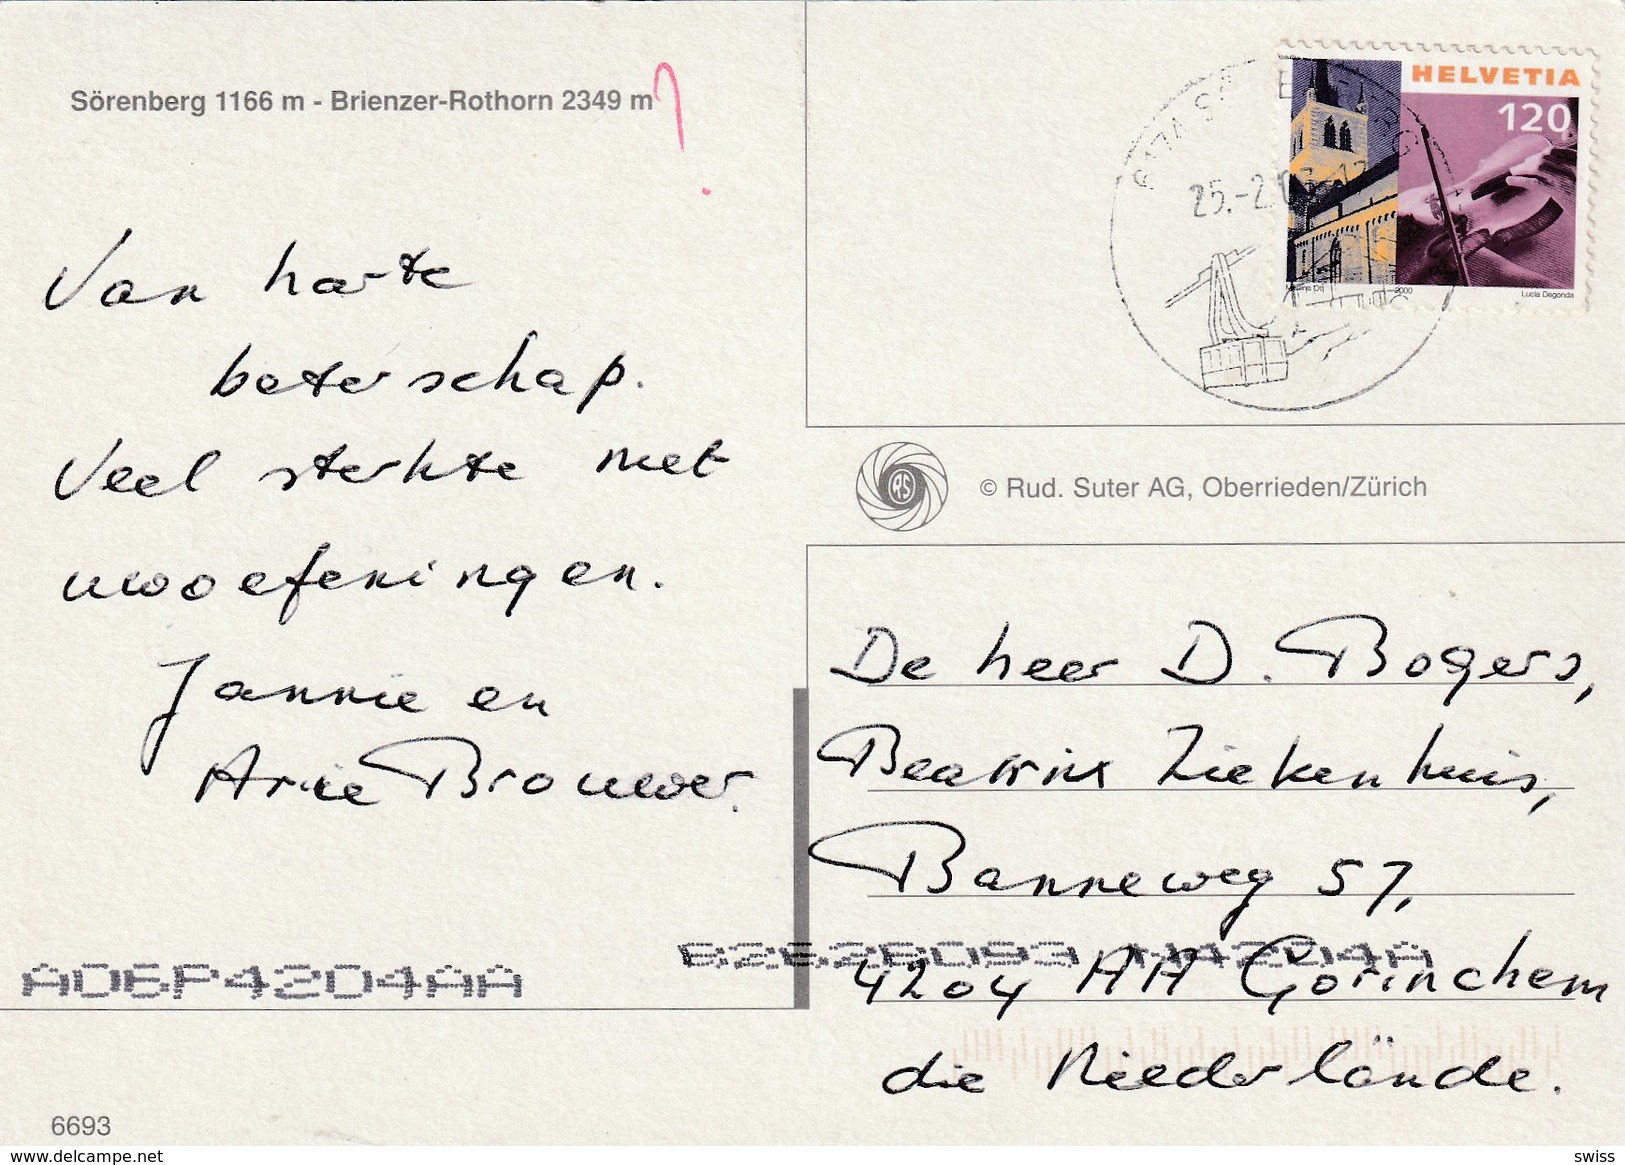 Sörenberg 1166 m - Brienzer-Rothorn 2349 m
Van harte
beterschap.
Veel sterkte met
uw oefeningen.
Jannie en
Arie Brouwer.
A06P4204AA
6693
www.delcampe.net
HELVETIA
120
25.-2.
2000
Lucia Degonda
RS
© Rud. Suter AG, Oberrieden/Zürich
De heer D. Bogers,
Beatrix Ziekenhuis,
Banneweg 57,
4204 AA Gorinchem
die Niederlände.
swiss